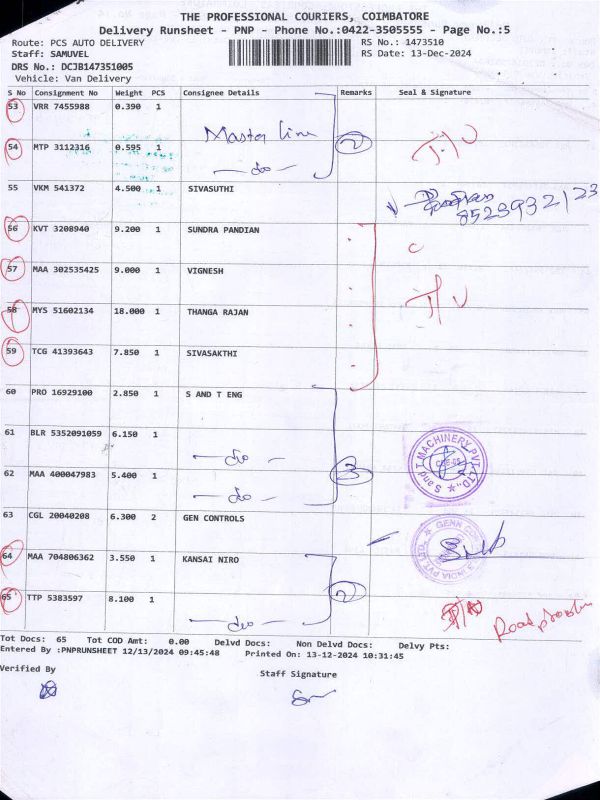 THE PROFESSIONAL COURIERS, COIMBATORE
Delivery Runsheet - PNP - Phone No.:0422-3505555 - Page No.:5
Route: PCS AUTO DELIVERY
RS No.: 1473510
Staff: SAMUVEL
RS Date: 13-Dec-2024
DRS No.: DCJB147351005
Vehicle: Van Delivery
S No Consignment No Weight PCS Consignee Details Remarks Seal & Signature
53 VRR 7455988 0.390 1
Master line
2
54 MTP 3112316 0.595 1
do
55 VKM 541372 4.500 1 SIVASUTHI
8523932123
56 KVT 3208940 9.200 1 SUNDRA PANDIAN
57 MAA 302535425 9.000 1 VIGNESH
58 MYS 51602134 18.000 1 THANGA RAJAN
59 TCG 41393643 7.850 1 SIVASAKTHI
60 PRO 16929100 2.850 1 S AND T ENG
61 BLR 5352091059 6.150 1
do
S and T MACHINERY PVT. LTD.,
3
62 MAA 400047983 5.400 1
do
63 CGL 20040208 6.300 2 GEN CONTROLS
64 MAA 704806362 3.550 1 KANSAI NIRO
2
65 TTP 5383597 8.100 1
do
Road problem
Tot Docs: 65 Tot COD Amt: 0.00 Delvd Docs: Non Delvd Docs: Delvy Pts:
Entered By :PNPRUNSHEET 12/13/2024 09:45:48 Printed On: 13-12-2024 10:31:45
Verified By
Staff Signature